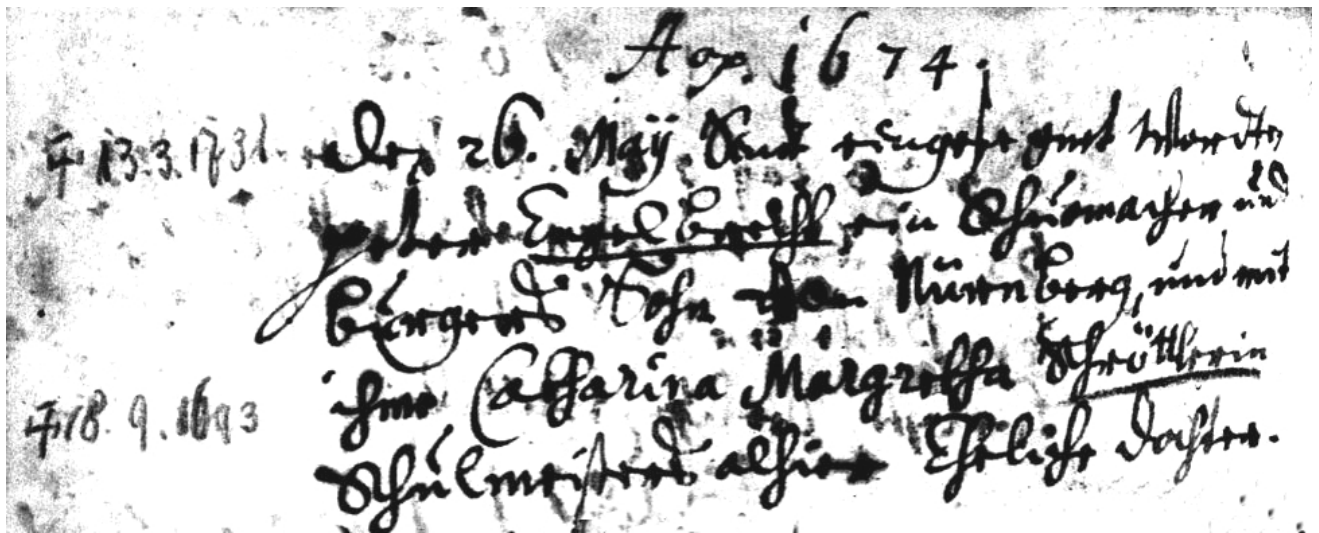 Ao. 1674.
13.3.1731. Den 26. Maÿ Seind eingesegnet Worden
peter Engelbrecht ein Schumacher und
bürgers Sohn von Nürnberg, und mit
ihme Catharina Margretha Schröttlerin
18.9.1693 Schulmeisters alhier Eheliche Dochter.